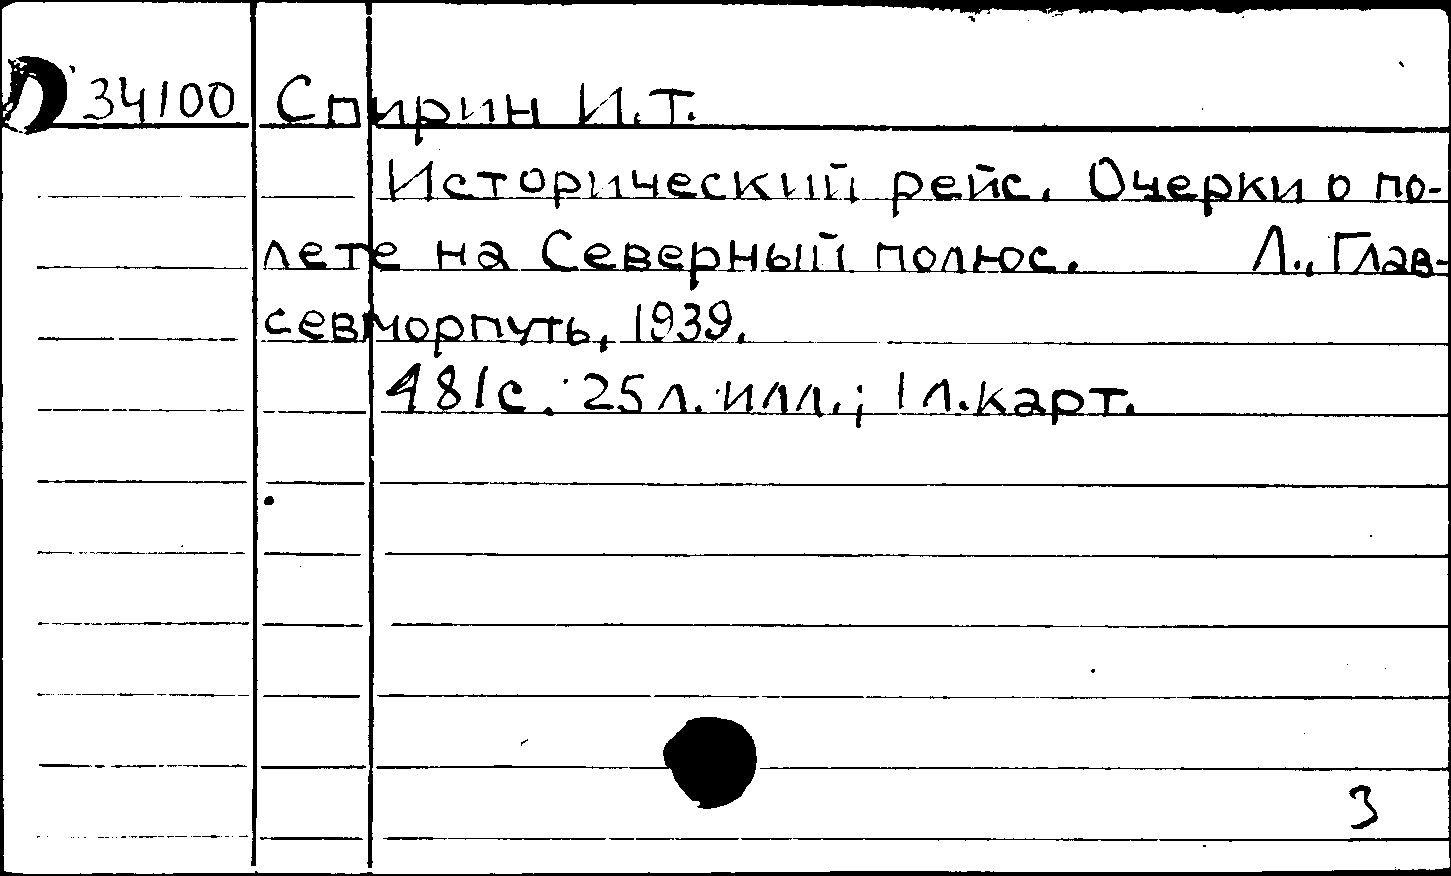 34100 Спирин И.Т.
Исторический рейс. Очерки о по-
лете на Северный полюс. Л., Глав-
севморпуть, 1939.
481с. 25л. илл.; 1 л. карт.
3